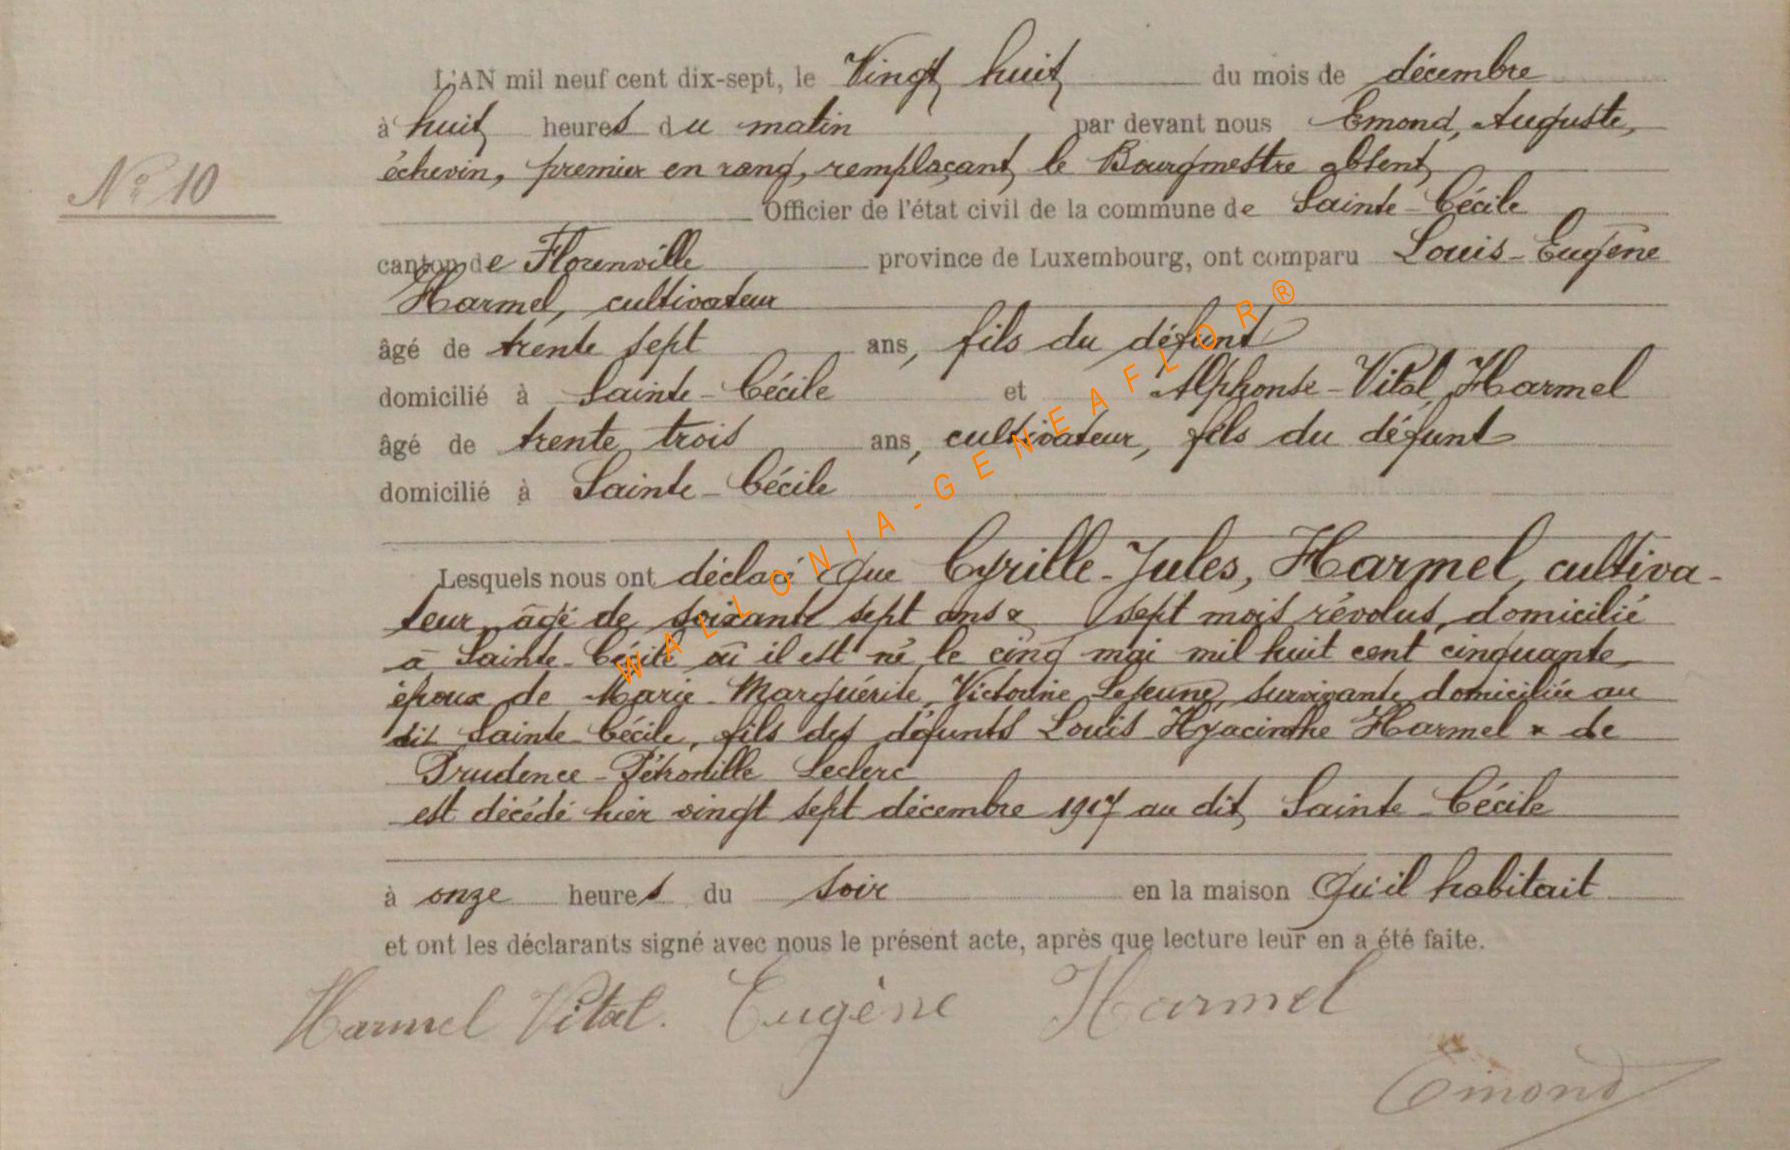 L'AN mil neuf cent dix-sept, le Vingt huit du mois de décembre
à huit heures du matin par devant nous Emond, Auguste,
échevin, premier en rang, remplaçant le Bourgmestre absent,
N° 10
Officier de l'état civil de la commune de Sainte-Cécile
canton de Florenville province de Luxembourg, ont comparu Louis-Eugène
Harmel, cultivateur
âgé de trente sept ans, fils du défunt
domicilié à Sainte-Cécile et Alphonse-Vital Harmel
âgé de trente trois ans, cultivateur, fils du défunt
domicilié à Sainte-Cécile
Lesquels nous ont déclaré que Cyrille-Jules, Harmel, cultiva-
teur, âgé de soixante sept ans & sept mois révolus, domicilié
à Sainte-Cécile où il est né le cinq mai mil huit cent cinquante,
époux de Marie-Marguérite Victorine Lejeune, survivante domiciliée au
dit Sainte-Cécile, fils des défunts Louis Hyacinthe Harmel & de
Prudence-Pétronille Leclerc
est décédé hier vingt sept décembre 1917 au dit Sainte-Cécile
à onze heures du soir en la maison qu'il habitait
et ont les déclarants signé avec nous le présent acte, après que lecture leur en a été faite.
Harmel Vital. Eugène Harmel
Emond
WALLONIA-GENEAFLOR®